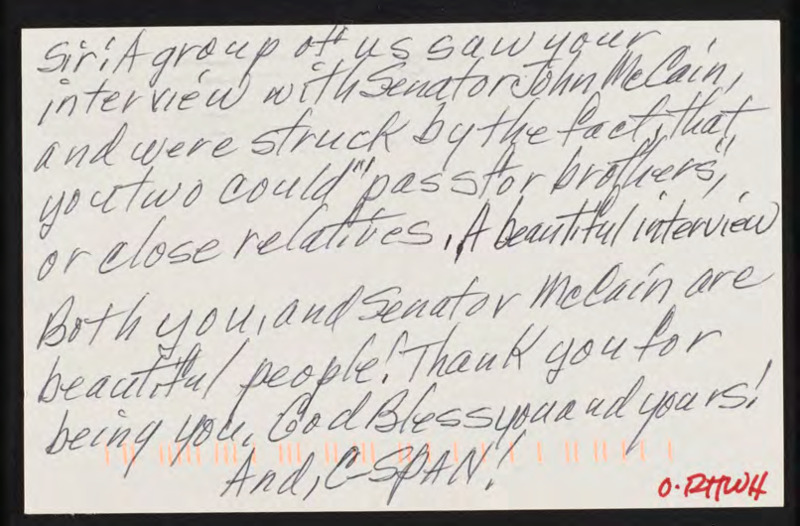 Sir: A group of us saw your
interview with Senator John McCain,
and were struck by the fact, that
you two could "pass for brothers",
or close relatives. A beautiful interview
Both you, and Senator McCain are
beautiful people! Thank you for
being you. God Bless you and yours!
And, C-SPAN!